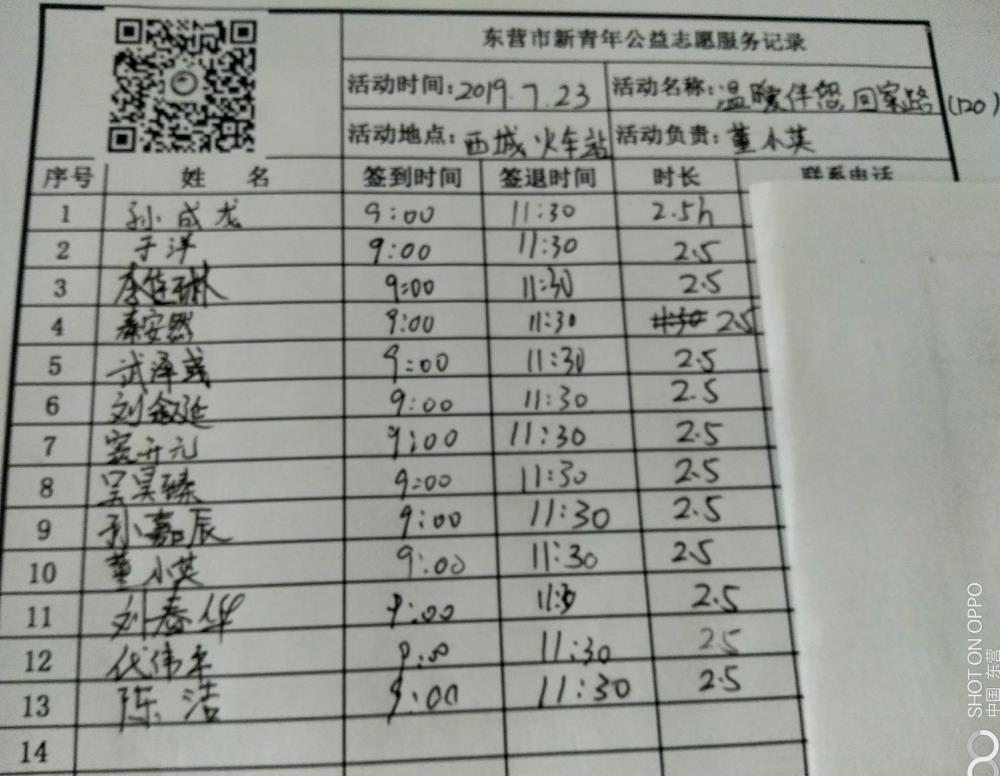 东营市新青年公益志愿服务记录
活动时间:2019.7.23 活动名称:温暖伴您回家路(120)
活动地点:西城火车站 活动负责:董小英
序号 姓 名 签到时间 签退时间 时长 联系电话
1 孙成龙 9:00 11:30 2.5h
2 于洋 9:00 11:30 2.5
3 李佳琳 9:00 11:30 2.5
4 秦安然 9:00 11:30 11:30 2.5
5 武泽彧 9:00 11:30 2.5
6 刘叙延 9:00 11:30 2.5
7 寇开元 9:00 11:30 2.5
8 吴昊臻 9:00 11:30 2.5
9 孙嘉辰 9:00 11:30 2.5
10 董小英 9:00 11:30 2.5
11 刘春华 9:00 11:30 2.5
12 代伟 9:00 11:30 2.5
13 陈浩 9:00 11:30 2.5
14
SHOT ON OPPO
中国 东营